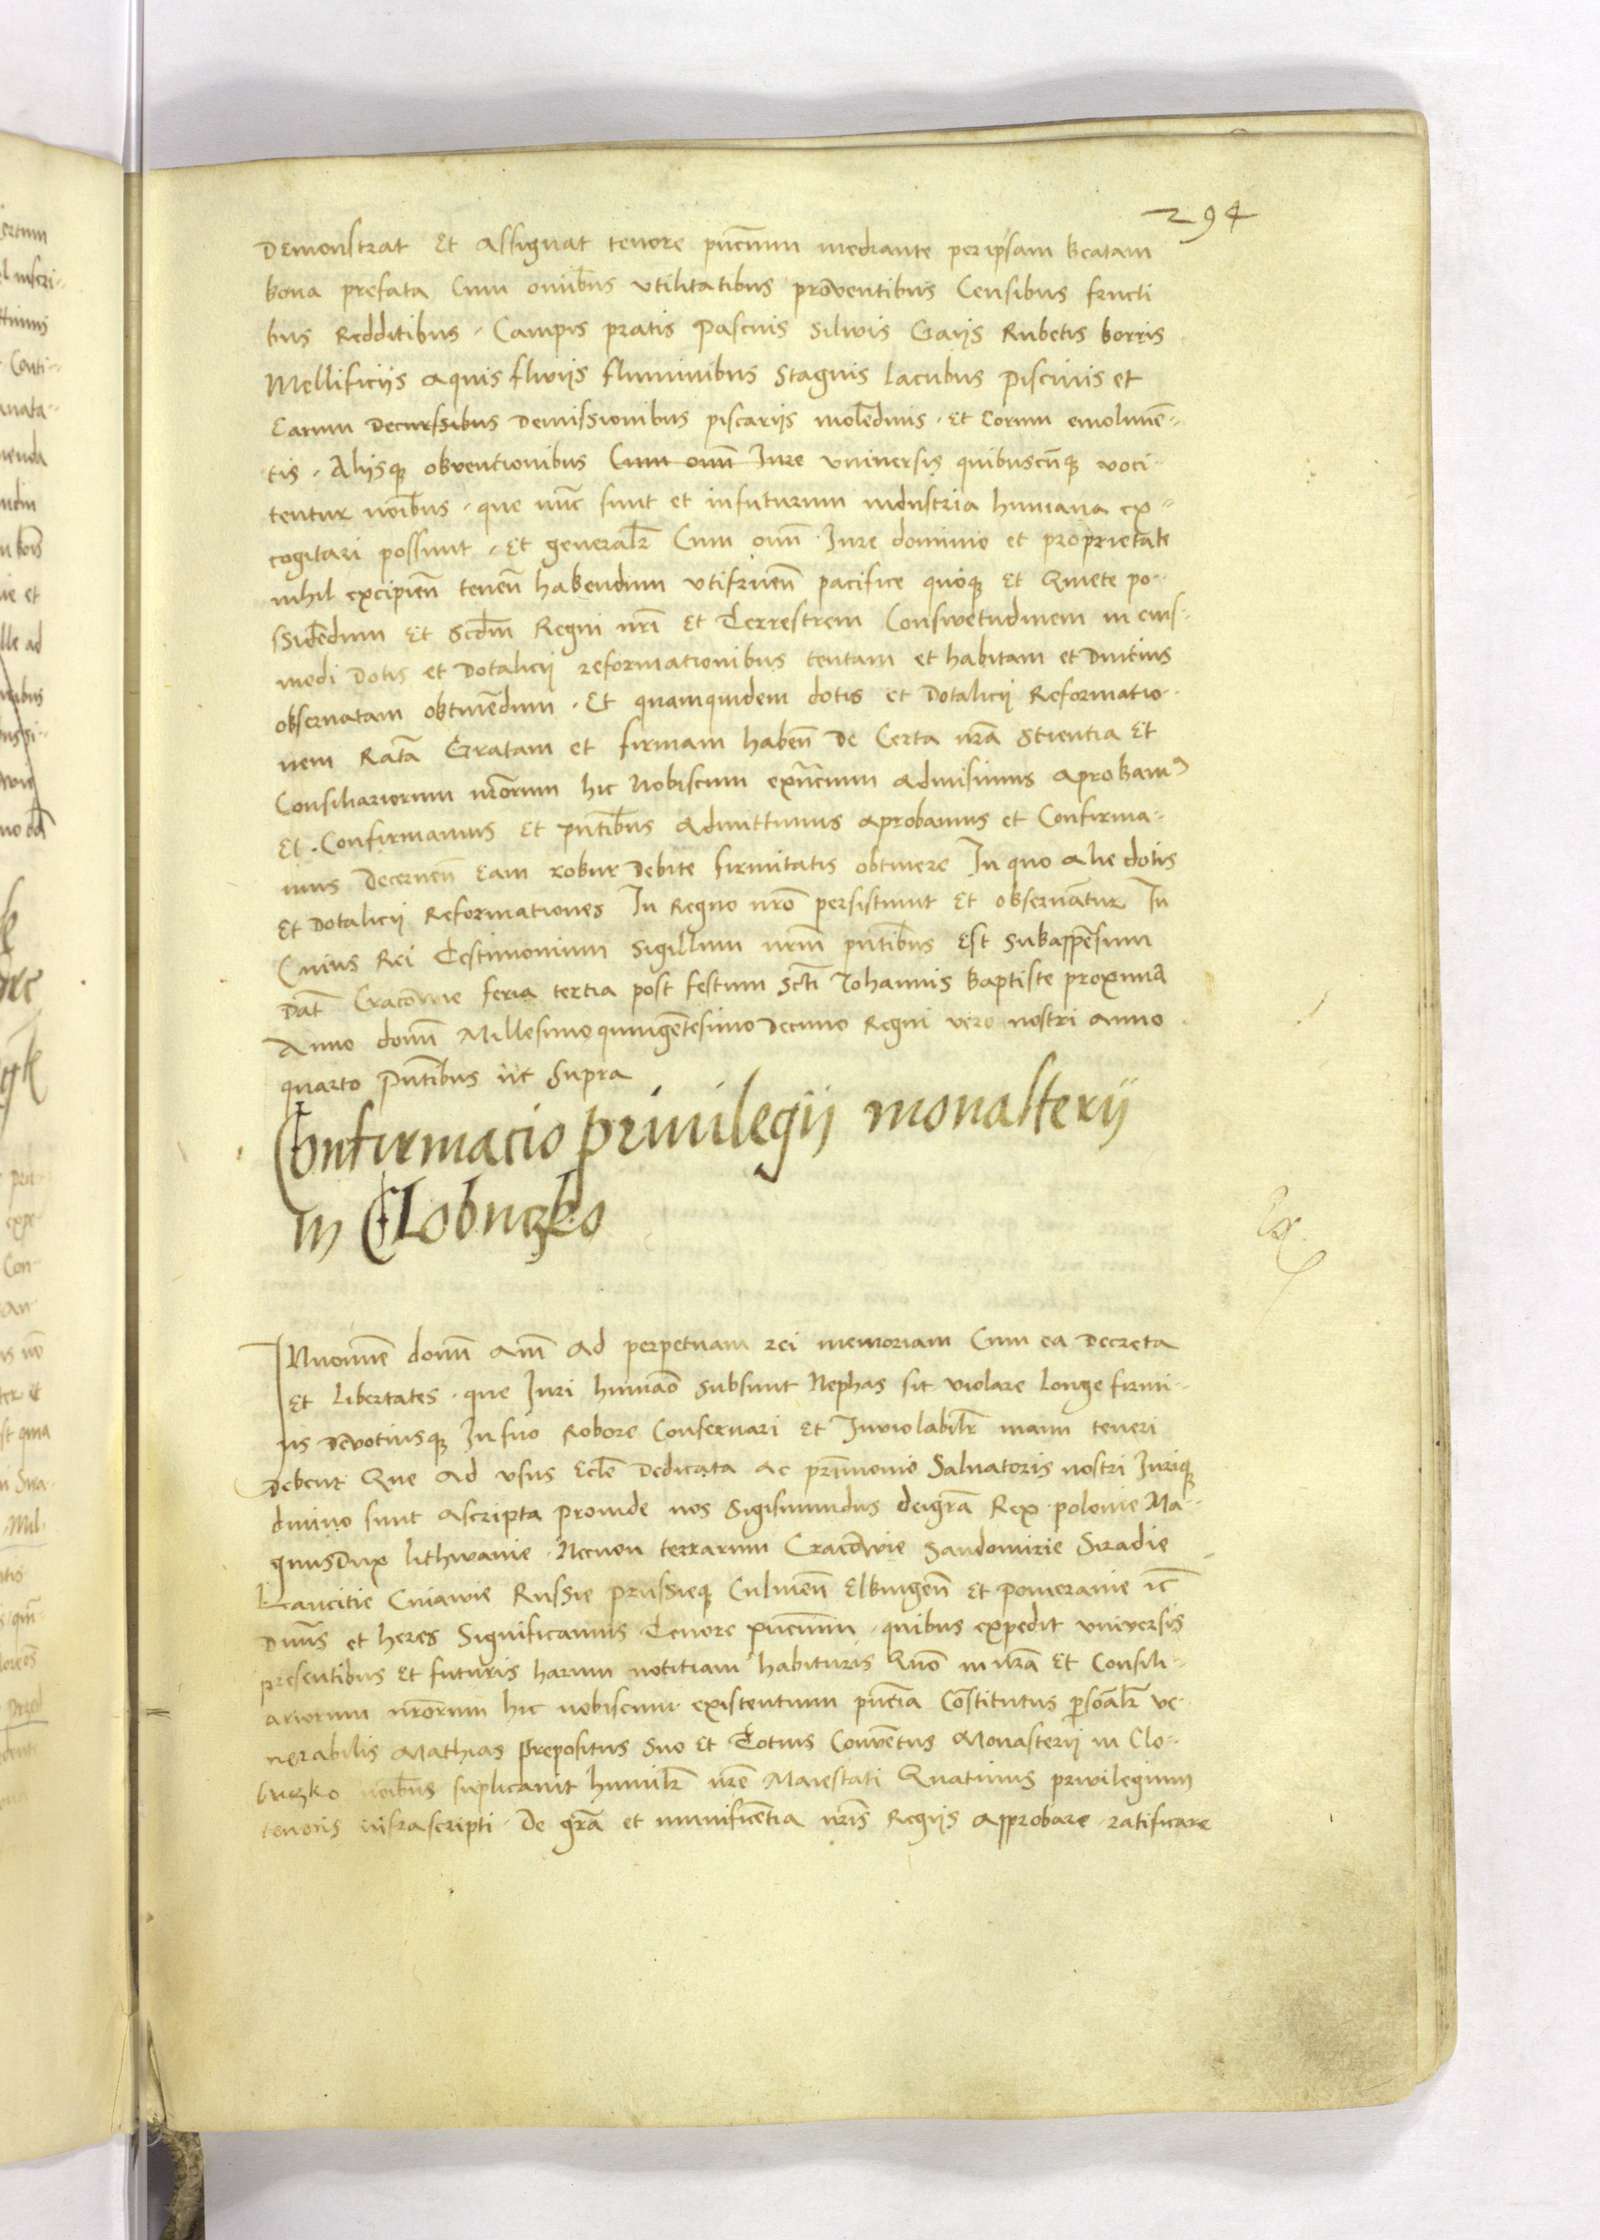 294
Demonstrat Et Assignat tenore pñcium mediante per ipsam Beatam
bona prefata Cum omĩbus vtilitatibus proventibus Censibus fructi
bus Redditibus . Campis pratis Pascuis Silwis Gaijs Rubetis borris
Mellificijs aquis fluvijs fluminibus Stagnis Lacubus piscinis et
Earum Decurssibus Demissionibus piscarijs moleđinis . Et Eorum emolumē-
tis . Alijsqȝ obventionibus Cum omñ Iure vniversis quibuscñqȝ voci-
tentur noĩbus . que nũc sunt et infuturum industria humana ex-
cogitari possunt . Et generalr̃ Cum omñ Iure dominio et proprietate
nihil excipieñ teneñ habendum vtifrueñ pacifice quoqȝ Et Quiete po-
ssidēdum Et Scđm Regni nrĩ Et Terrestrem Conswetudinem in eius-
modi Dotis et Dotalicij reformationibus tentam et habitam et Diutius
obseruatam obtinēdum . Et quamquidem dotis et Dotalicij Reformatio-
nem Ratã Gratam et firmam habeñ De Certa nrã Scientia Et
Consiliariorum nrõrum hic Nobiscum exñcium Admisimus Aprobamꝰ
Et . Confirmamus Et pñtibus Admittimus aprobamus et Confirma-
mus Decerneñ Eam robur Debite firmitatis obtinere In quo Alie dotis
Et Dotalicij Reformationes In Regno nrõ persistunt Et obseruãtur In
Cuius Rei Testimonium Sigillum nrm̃ pñtibus Est Subappēsum
Dat̃ Cracovie feria tertia post festum Sctĩ Iohannis Baptiste proxima
Anno domñ Millesimo quingētesimo Decimo Regni vero nostri anno
quarto pñtibus ut Supra
Confirmacio priuilegij monasterij
in Clobuczko
Ex
In nomĩe domñ Am̃ Ad perpetuam rei memoriam Cum ea Decreta
Et libertates . que Iuri humãо subsunt Nephas sit violare Longe firmi-
us Devotiusqȝ In suo Robore Conseruari Et Inviolabilr̃ manu teneri
Debent Que Ad vsus Eclẽ Dedicata ac prĩmonio Saluatoris nostri Iuriqȝ
diuino sunt ascripta Proinde nos Sigismundus dei grã Rex polonie Ma-
gnus Dux lithwanie . Necnon terrarum Cracovie Sandomirie Siradie
Lancitie Cuiawie Russie prussieqȝ Culmeñ Elbingeñ Et Pomeranie ic̃
Dnũs et heres Significamus Tenore pñcium . quibus expedit vniversis
presentibus Et futuris harum notitiam habituris Quõ in nrã Et Consili-
ariorum nrõrum hic nobiscum existentium pñcia Cõstitutus persõalr̃ ve-
nerabilis Mathias Prepositus Suo Et Totius Convētus Monasterij in Clo-
buczko noĩbus suplicauit humilr̃ nrẽ Maiestati Quatinus privilegium
tenoris infrascripti . De grã et munificẽtia nrĩs Regijs Approbare . ratificare